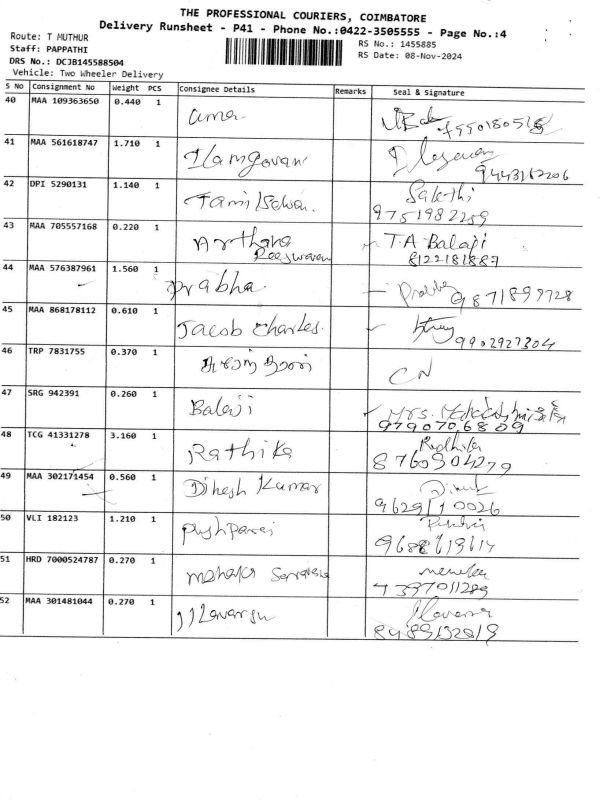 THE PROFESSIONAL COURIERS, COIMBATORE
Delivery Runsheet - P41 - Phone No.:0422-3505555 - Page No.:4
Route: T MUTHUR
RS No.: 1455885
Staff: PAPPATHI
RS Date: 08-Nov-2024
DRS No.: DCJB145588504
Vehicle: Two Wheeler Delivery
S No Consignment No Weight PCS Consignee Details Remarks Seal & Signature
40 MAA 109363650 0.440 1 uma
41 MAA 561618747 1.710 1 Ilamgovan
9443162206
42 DPI 5290131 1.140 1 Tamilselvan. Sakthi
9751982259
43 MAA 705557168 0.220 1 Arthana T.A Balaji
Reeswaran 8122181887
44 MAA 576387961 1.560 1 Prabha. 9871899728
45 MAA 868178112 0.610 1 Jacob Charles.
9902927304
46 TRP 7831755 0.370 1 CN
47 SRG 942391 0.260 1 Balaji Mrs.
9790706809
48 TCG 41331278 3.160 1 Rathika Radhika
8760904279
49 MAA 302171454 0.560 1 Dinesh Kumar
9629110026
50 VLI 182123 1.210 1 Pushparaj
9688619614
51 HRD 7000524787 0.270 1
52 MAA 301481044 0.270 1